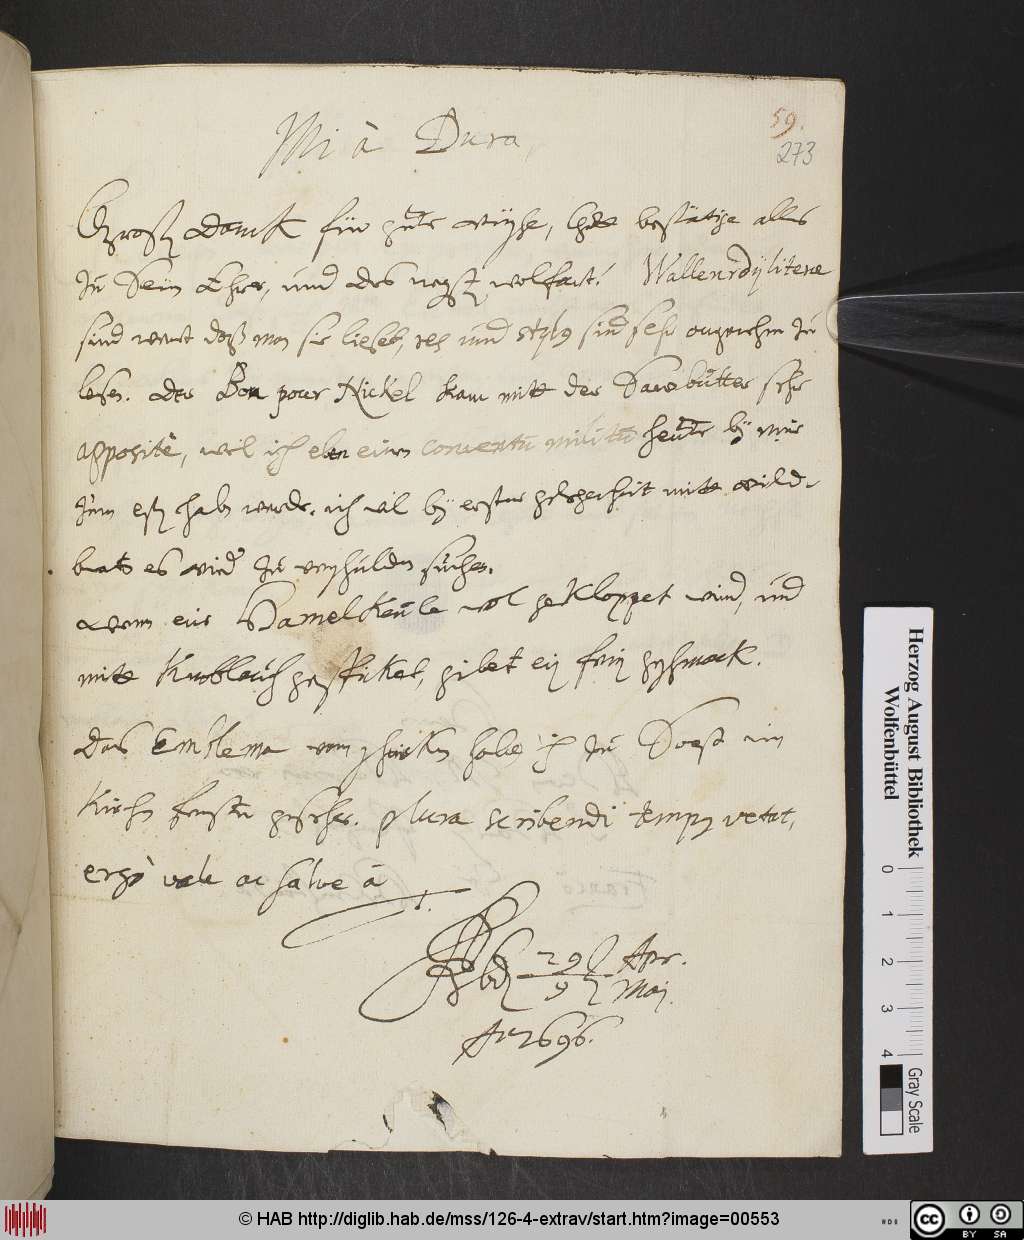 Mi à Dura,
59.
273
Großen danck für gute wüsche, Gott bestätige alles
zu Sein Ehre, und des negsten wolfart. Wallenrdÿliterae
sind wert daß man sie liebet, res und stylus sind sehr angenehm zu
lesen. der Bon pour Nickel kam mitt der butter sehr
appositè, weil ich eben einen conventu militu heute bÿ mir
zum eßen haben werde. ich wil bÿ erster gelegenheit mitt wild-
braten es wieder zu verschulden suchen.
wenn eine Hamelkeule wol gekloppet wird, und
mitt Knoblauch gespicket, gibet ein fein geschmack.
das Emblema vom habe ich zu Soest im
Kirchen fenster gesehen. plura scribendi tempus vetat,
ergò vale ac salve à
T.
29 Apr.
9 Maj
Ao 1696.
Herzog August Bibliothek
Wolfenbüttel
0
1
2
3
4
Gray Scale
© HAB http://diglib.hab.de/mss/126-4-extrav/start.htm?image=00553
cc BY SA